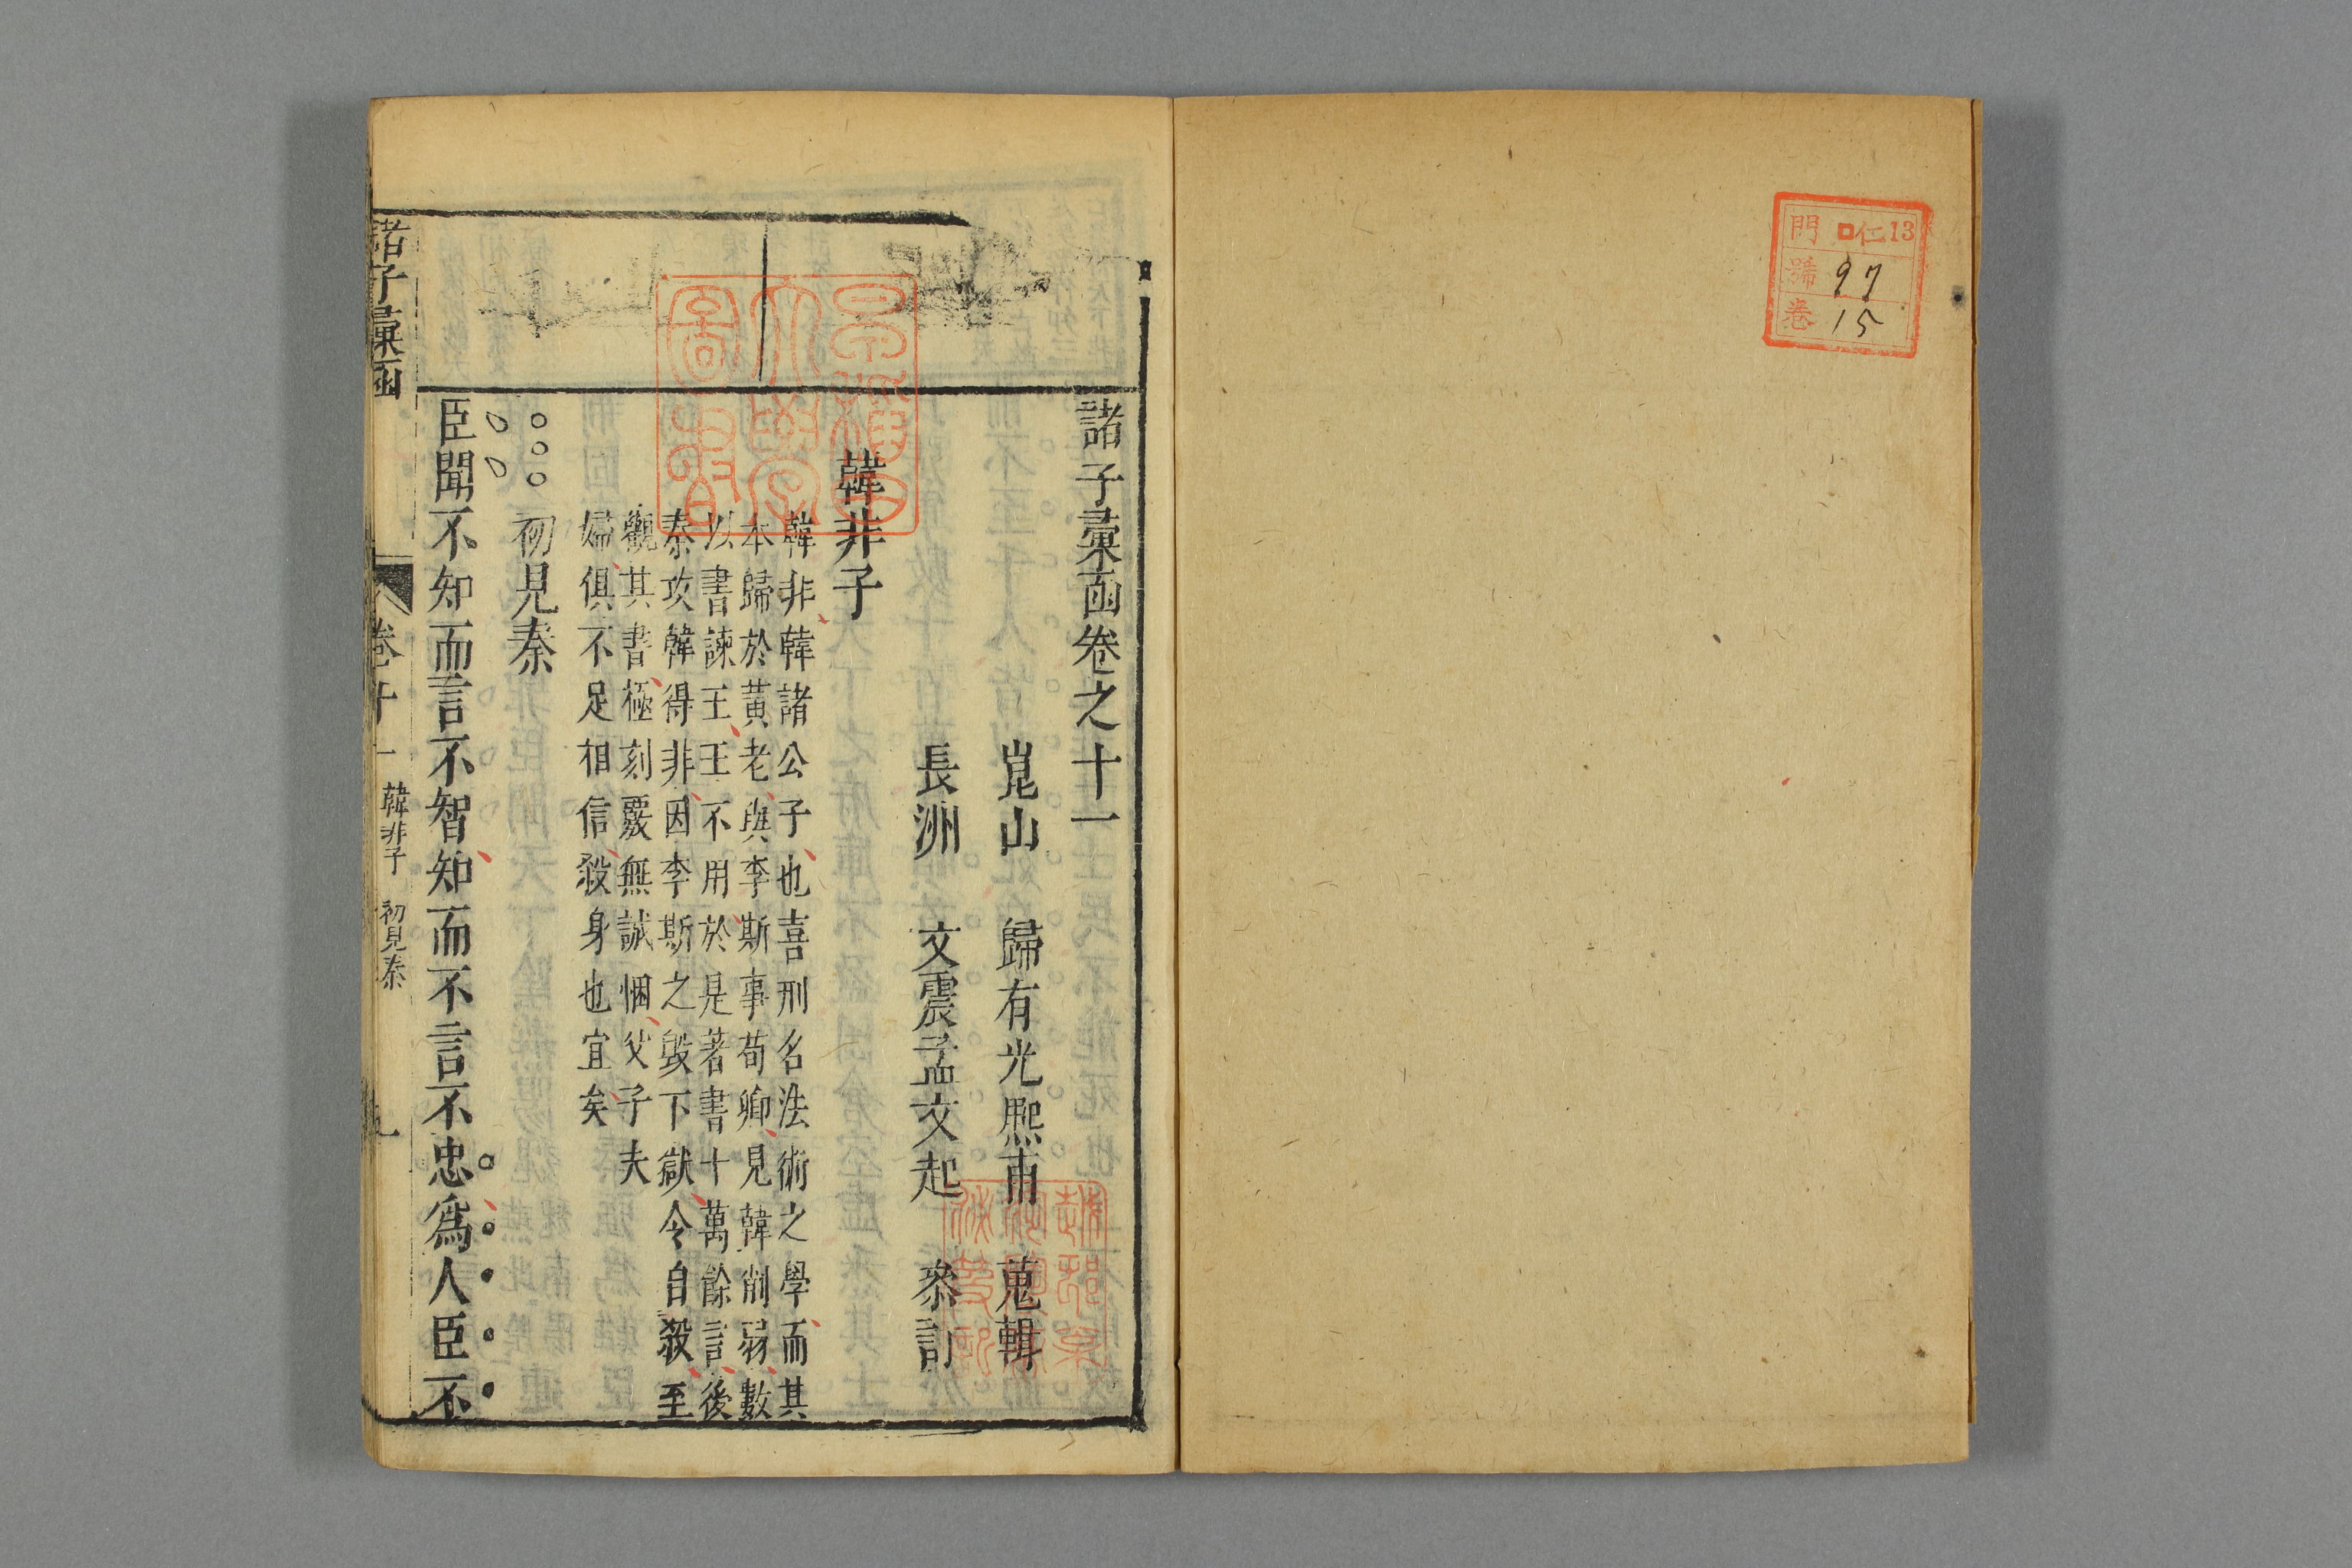 門 仁13
號 97
卷 15
諸子彚函卷之十一
崑山 歸有光熙甫 蒐輯
長洲 文震孟文起 叅訂
韓非子
韓非韓諸公子也喜刑名法術之學而其
本歸於黃老與李斯事荀卿見韓削弱數
以書諫王王不用於是著書十萬餘言後
秦攻韓得非因李斯之毀下獄令自殺至
觀其書極刻覈無誠悃父子夫
婦俱不足相信殺身也宜矣
初見秦
臣聞不知而言不智知而不言不忠爲人臣不
諸子彚函 卷十一 韓非子 初見秦